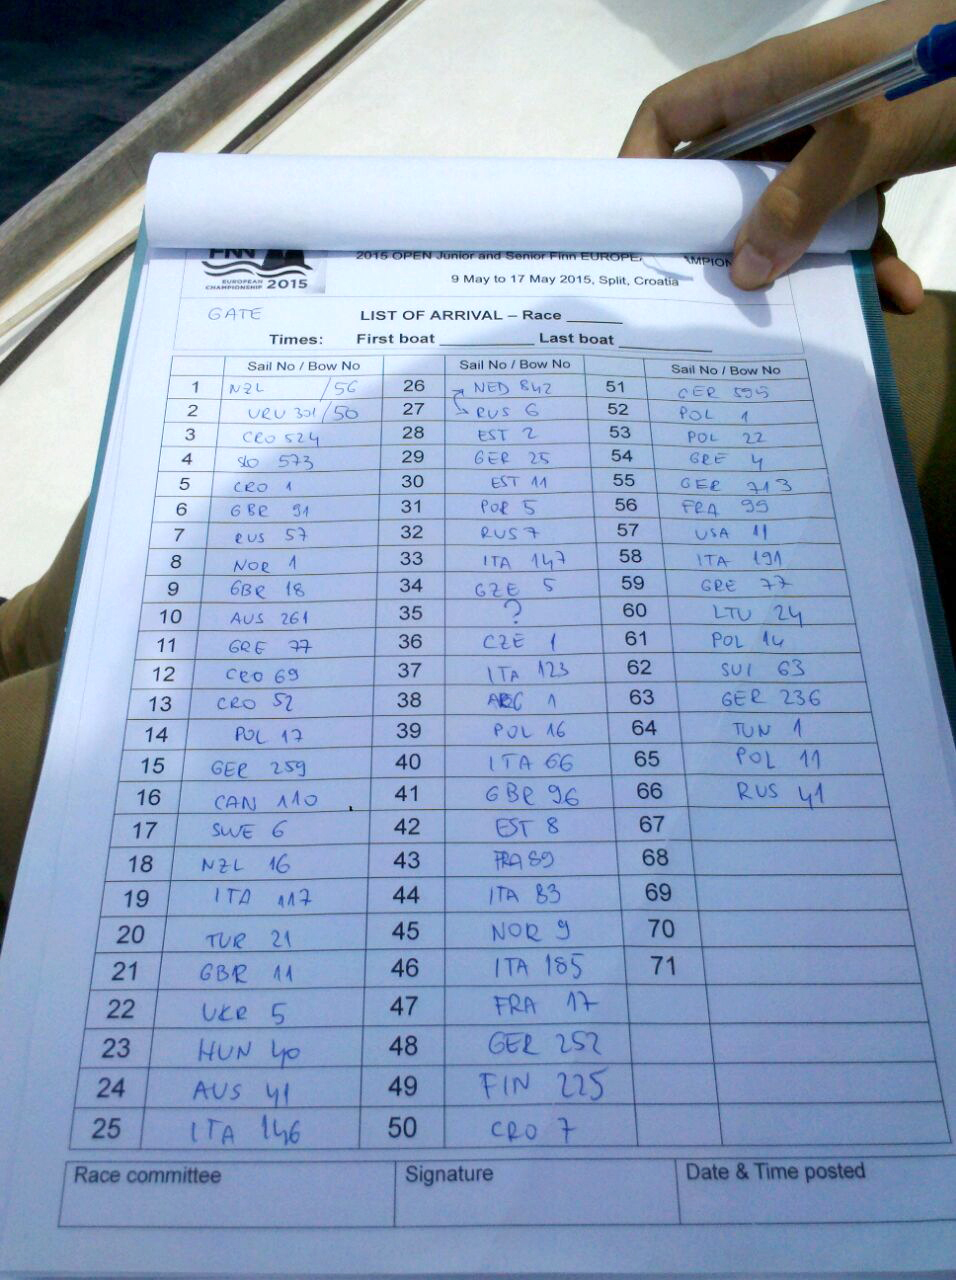 FINN
EUROPEAN
CHAMPIONSHIP 2015
2015 OPEN Junior and Senior Finn
9 May to 17 May 2015, Split, Croatia
GATE
LIST OF ARRIVAL – Race ______
Times: First boat ______ Last boat ______
Sail No / Bow No Sail No / Bow No Sail No / Bow No
1 NZL /56 26 NED 842 51 GER 595
2 URU 301/50 27 RUS 6 52 POL 1
3 CRO 524 28 EST 2 53 POL 22
4 SLO 573 29 GER 25 54 GRE 4
5 CRO 1 30 EST 11 55 GER 713
6 GBR 91 31 POR 5 56 FRA 99
7 RUS 57 32 RUS 7 57 USA 11
8 NOR 1 33 ITA 147 58 ITA 191
9 GBR 18 34 GZE 5 59 GRE 77
10 AUS 261 35 ? 60 LTU 24
11 GRE 77 36 CZE 1 61 POL 14
12 CRO 69 37 ITA 123 62 SUI 63
13 CRO 52 38 ARG 1 63 GER 236
14 POL 17 39 POL 16 64 TUN 1
15 GER 259 40 ITA 66 65 POL 11
16 CAN 110 41 GBR 96 66 RUS 41
17 SWE 6 42 EST 8 67
18 NZL 16 43 FRA 89 68
19 ITA 117 44 ITA 83 69
20 TUR 21 45 NOR 9 70
21 GBR 11 46 ITA 185 71
22 UKR 5 47 FRA 17
23 HUN 40 48 GER 252
24 AUS 41 49 FIN 225
25 ITA 146 50 CRO 7
Race committee Signature Date & Time posted